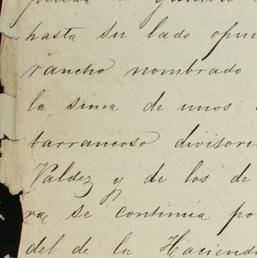 hasta su lado opue
rancho nombrado
la sima de unos
barrancoso divisori
Valdez y de los de
se continúa po
del de la Haciend